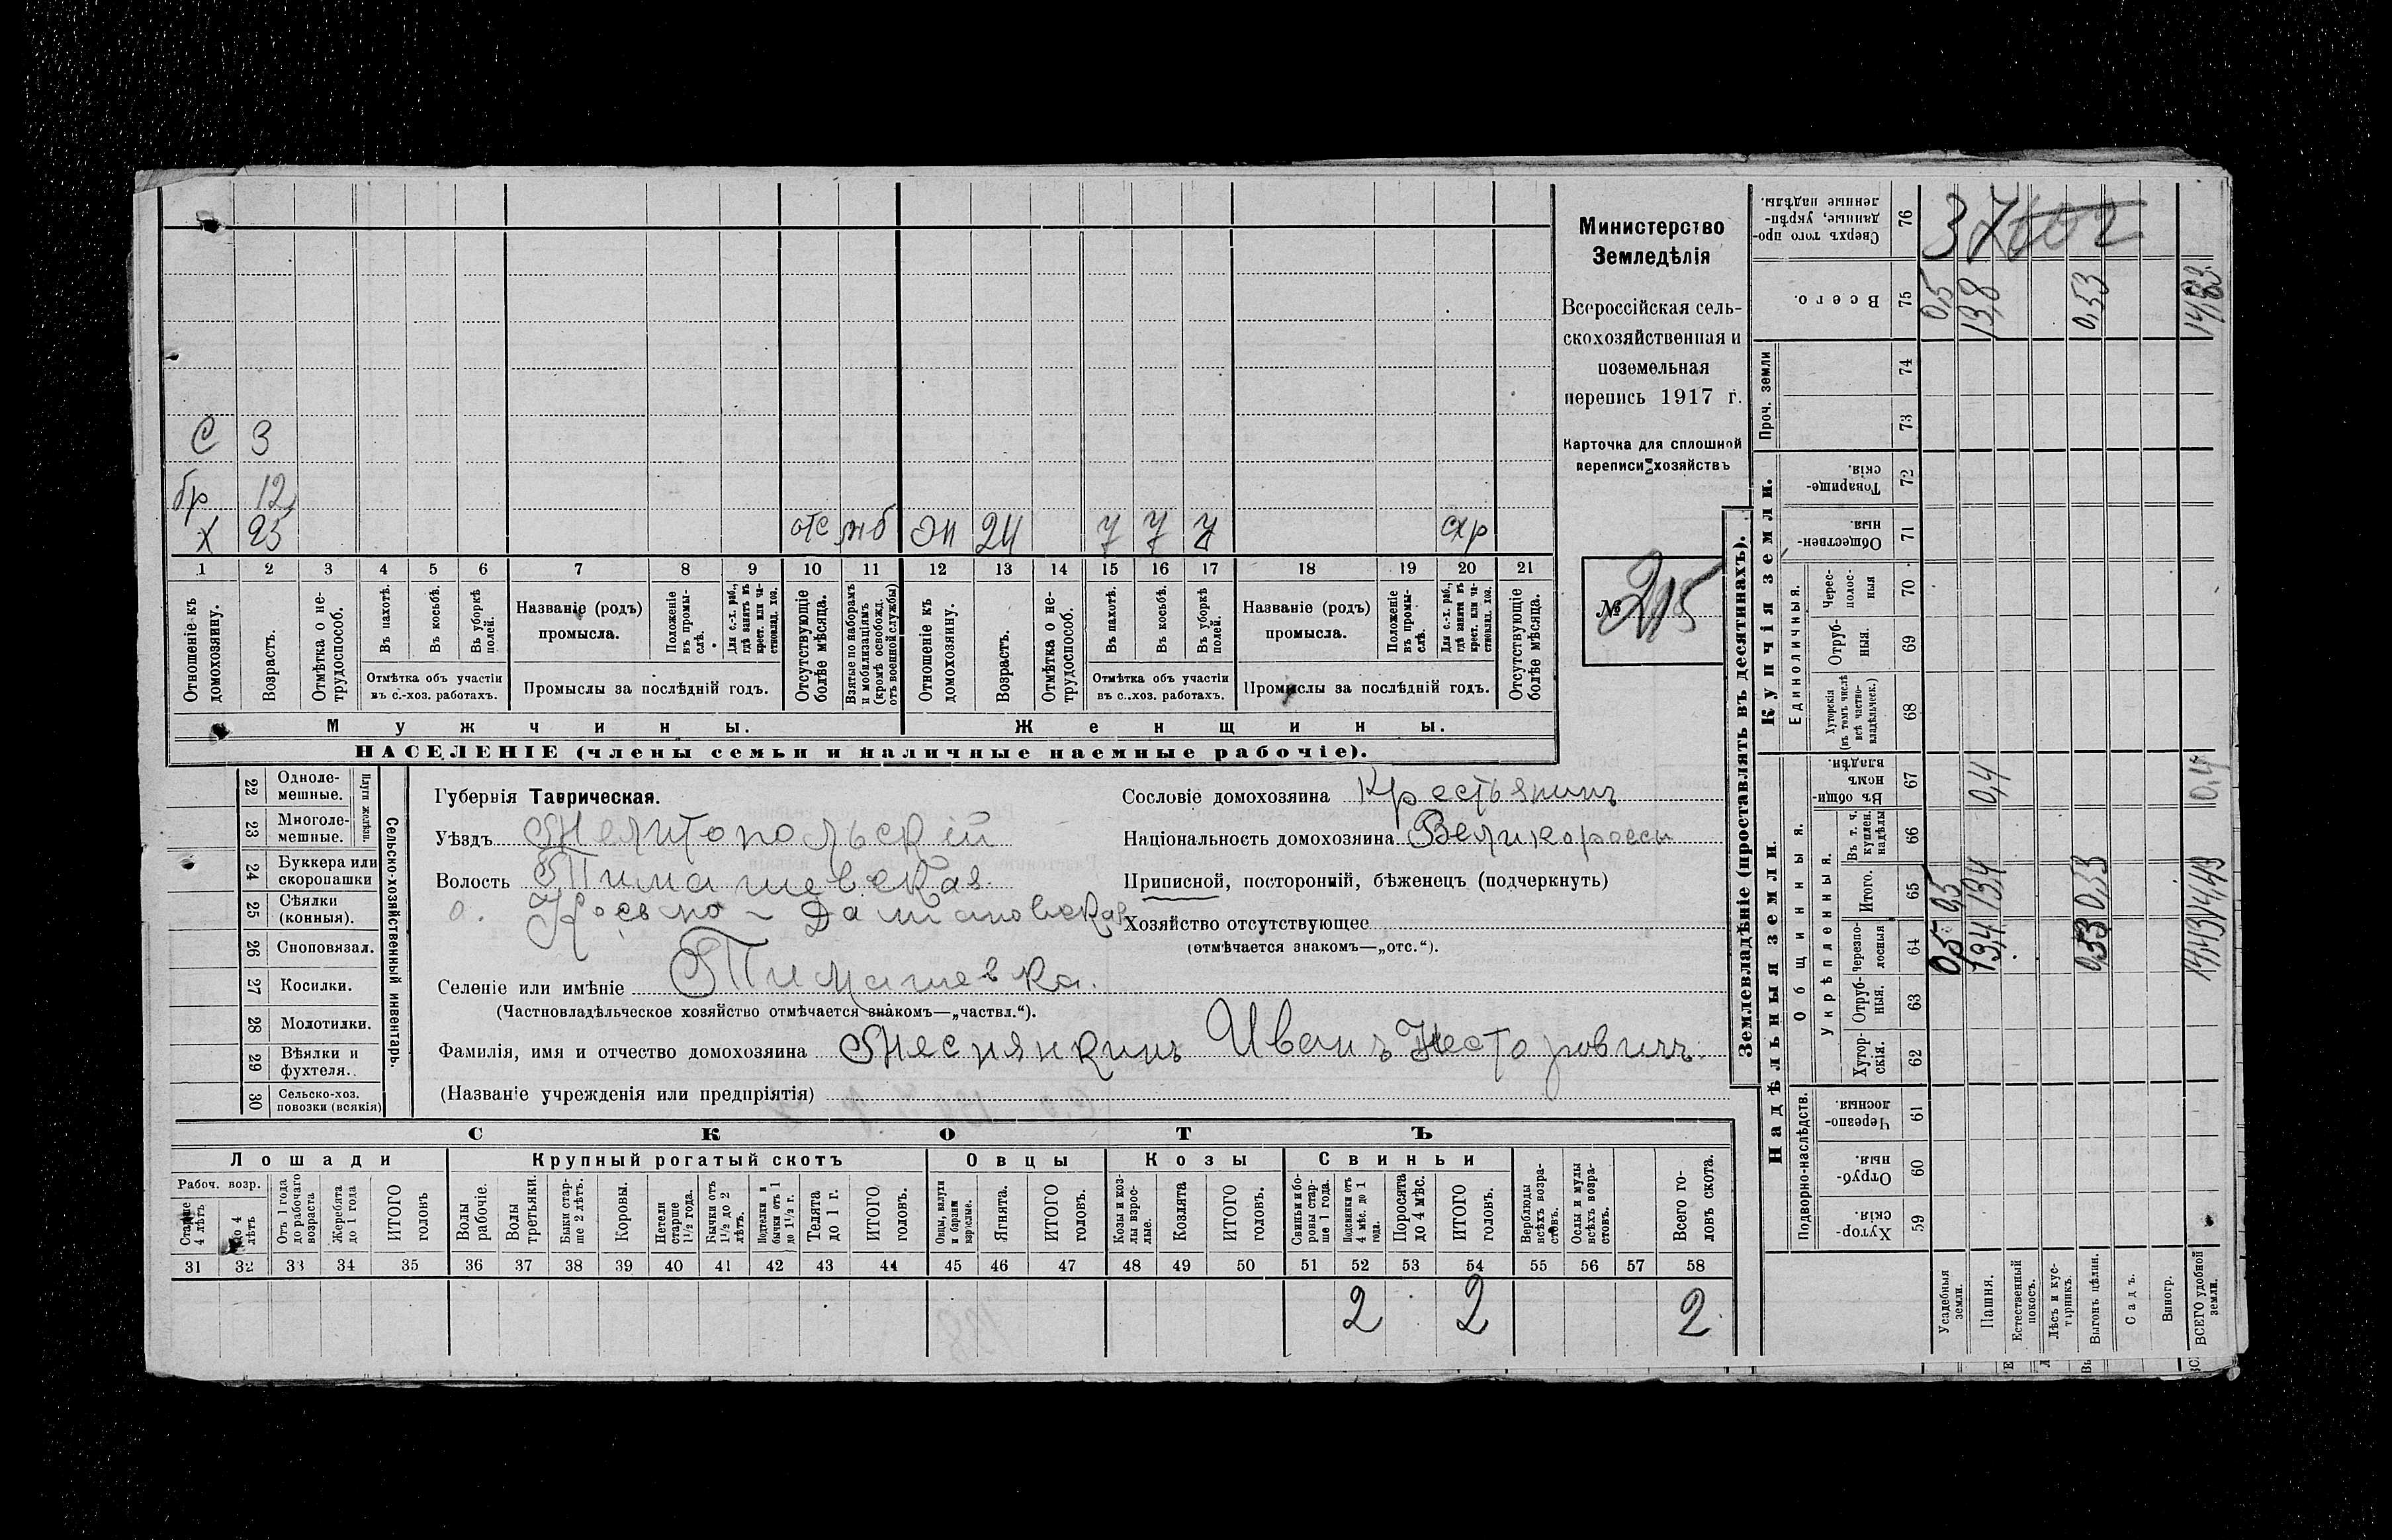 С 3
бр 12
х 23 отс мб жн 24 7 7 7 схр
1 2 3 4 5 6 7 8 9 10 11 12 13 14 15 16 17 18 19 20 21
Отношеніе къ домохозяину.
Возрастъ.
Отмѣтка о не-трудоспособ.
Въ пахотѣ.
Въ косьбѣ.
Въ уборкѣ полей.
Отмѣтка объ участіи
въ с.-хоз. работахъ.
Названіе (родъ)
промысла.
Положеніе въ промы-слѣ.
Для с.-х. раб., гдѣ занятъ въ крест. или ча-стновлад. хоз.
Промыслы за послѣдній годъ.
Отсутствующіе болѣе мѣсяца.
Взятые по наборамъ и мобилизаціямъ (кромѣ освобожд. отъ военной службы)
Отношеніе къ домохозяину.
Возрастъ.
Отмѣтка о не-трудоспособ.
Въ пахотѣ.
Въ косьбѣ.
Въ уборкѣ полей.
Отмѣтка объ участіи
въ с.-хоз. работахъ.
Названіе (родъ)
промысла.
Положеніе въ промы-слѣ.
Для с.-х. раб., гдѣ занята въ крест. или ча-стновлад. хоз.
Промыслы за послѣдній годъ.
Отсутствующіе болѣе мѣсяца.
Мужчины. Женщины.
НАСЕЛЕНІЕ (члены семьи и наличные наемные рабочіе).
Министерство
Земледѣлія
Всероссійская сель-
скохозяйственная и
поземельная
перепись 1917 г.
Карточка для сплошной
переписи хозяйствъ
№ 215
22 Одноле-мешные.
23 Многоле-мешные.
Плуги желѣзн.
24 Буккера или скоропашки
25 Сѣялки (конныя).
26 Сноповязал.
27 Косилки.
28 Молотилки.
29 Вѣялки и фухтеля.
30 Сельско-хоз. повозки (всякія)
Сельско-хозяйственный инвентарь.
Губернія Таврическая.
Уѣздъ Мелитопольскій
Волость Тимашевская
о.
Селеніе или имѣніе Тимашевка.
(Частновладѣльческое хозяйство отмѣчается знакомъ—„частвл.“).
Фамилія, имя и отчество домохозяина Меснянкинъ Иванъ Несторовичъ.
(Названіе учрежденія или предпріятія)
Сословіе домохозяина Крестьянинъ
Національность домохозяина Великороссъ
Приписной, посторонній, бѣженецъ (подчеркнуть)
Хозяйство отсутствующее
(отмѣчается знакомъ—„отс.“).
СКОТЪ
Лошади Крупный рогатый скотъ Овцы Козы Свиньи
Рабоч. возр.
Старше 4 лѣтъ
До 4 лѣтъ
Отъ 1 года до рабочаго возраста
Жеребята до 1 года
ИТОГО головъ
Волы рабочіе.
Волы третьяки.
Быки стар-ше 2 лѣтъ.
Коровы.
Нетели старше 1½ года.
Бычки отъ 1½ до 2 лѣтъ.
Подтелки и бычки отъ 1 до 1½ г.
Телята до 1 г.
ИТОГО головъ.
Овцы, валухи и бараны взрослые.
Ягнята.
ИТОГО головъ.
Козы и коз-лы взрос-лые.
Козлята
ИТОГО головъ.
Свиньи и бо-ровы стар-ше 1 года.
Подсвинки отъ 4 мѣс. до 1 года.
Поросята до 4 мѣс.
ИТОГО головъ.
Верблюды всѣхъ возра-стовъ.
Ослы и мулы всѣхъ возра-стовъ.
Всего го-ловъ скота.
31 32 33 34 35 36 37 38 39 40 41 42 43 44 45 46 47 48 49 50 51 52 53 54 55 56 57 58
2 2 2
Землевладѣніе (проставлять въ десятинахъ).
Сверхъ того про-данные, укрѣп-ленные надѣлы. 76 37 102
Всего. 75 0,5 13,8 0,53 14,83
Проч. земли
74
73
Купчія земли.
Товарище-скія. 72
Обществен-ныя. 71
Единоличныя.
Черес-полос-ныя 70
Отруб-ныя. 69
Хуторскія (въ томъ числѣ всѣ частно-владѣльческ.) 68
Надѣльныя земли.
Общинныя.
Въ общи-номъ владѣн. 67 0,4 0,4
Укрѣпленныя.
Въ т. ч. куплен. надѣлы 66
Итого. 65 0,5 13,4 0,53 14,43
Черезпо-лосныя 64 0,5 13,4 0,53 14,43
Отруб-ныя. 63
Хутор-скія. 62
Подворно-наслѣдств.
Черезпо-лосныя. 61
Отруб-ныя. 60
Хутор-скія 59
Усадебныя земли.
Пашня.
Естественный покосъ.
Лѣсъ и кус-тарникъ.
Выгонъ цѣлин.
Садъ.
Виногр.
ВСЕГО удобной земли.